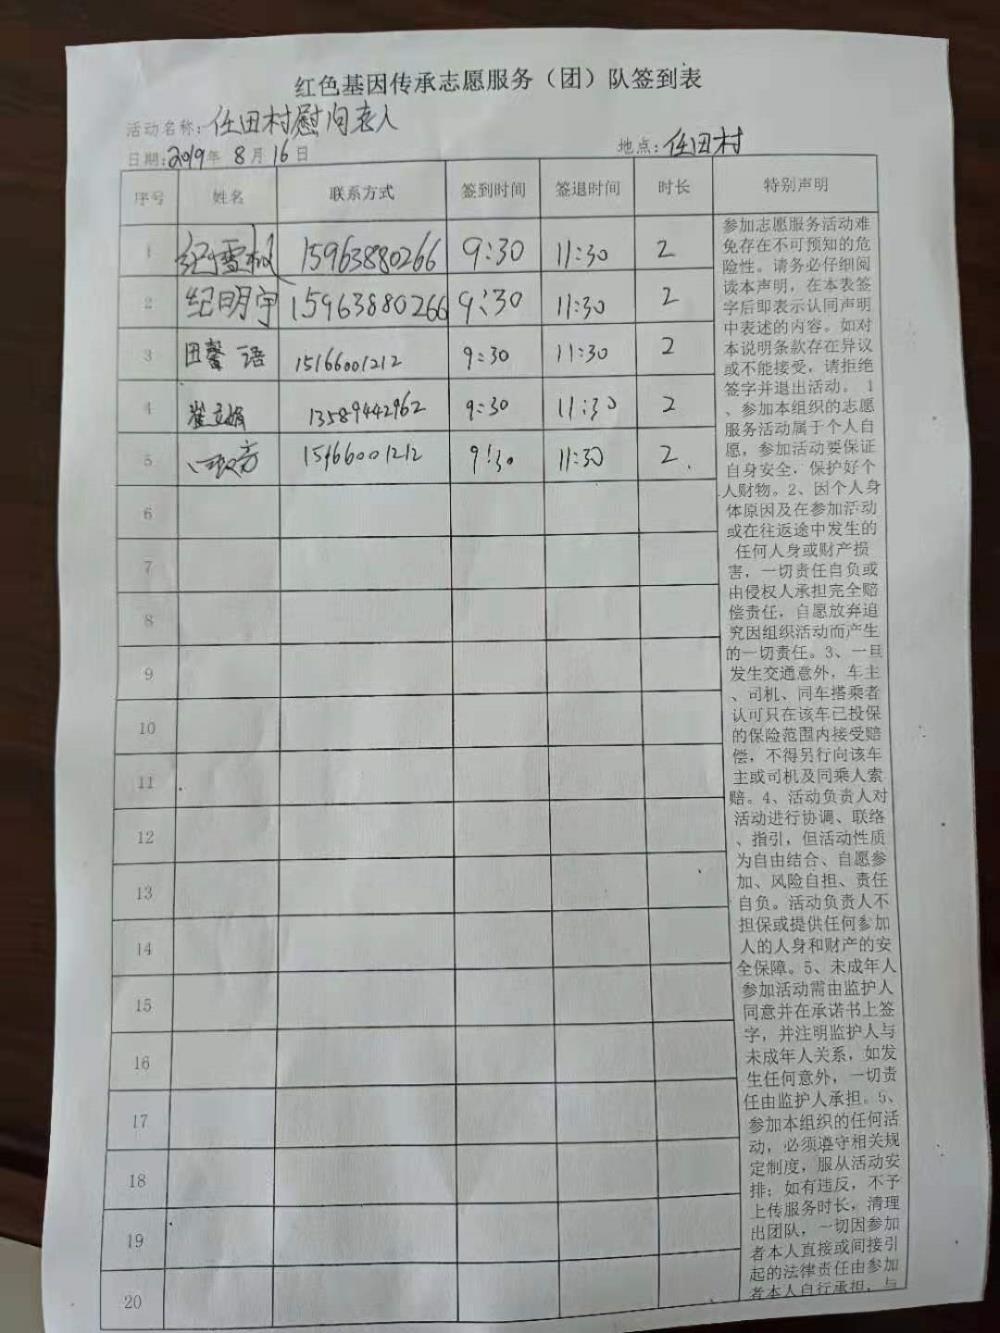 红色基因传承志愿服务（团）队签到表
活动名称：任田村慰问老人
日期：2019年 8月 16日 地点：任田村
序号 姓名 联系方式 签到时间 签退时间 时长 特别声明
1 15963880266 9:30 11:30 2
2 纪明宇 15963880266 9:30 11:30 2
3 田馨语 15166001212 9:30 11:30 2
4 崔文娟 13589442962 9:30 11:30 2
5 15166001212 9:30 11:30 2
6
7
8
9
10
11
12
13
14
15
16
17
18
19
20
参加志愿服务活动难
免存在不可预知的危
险性。请务必仔细阅
读本声明，在本表签
字后即表示认同声明
中表述的内容。如对
本说明条款存在异议
或不能接受，请拒绝
签字并退出活动。 1
、参加本组织的志愿
服务活动属于个人自
愿，参加活动要保证
自身安全，保护好个
人财物。2、因个人身
体原因及在参加活动
或在往返途中发生的
任何人身或财产损
害，一切责任自负或
由侵权人承担完全赔
偿责任，自愿放弃追
究因组织活动而产生
的一切责任。3、一旦
发生交通意外，车主
、司机、同车搭乘者
认可只在该车已投保
的保险范围内接受赔
偿，不得另行向该车
主或司机及同乘人索
赔。4、活动负责人对
活动进行协调、联络
、指引，但活动性质
为自由结合、自愿参
加、风险自担、责任
自负。活动负责人不
担保或提供任何参加
人的人身和财产的安
全保障。5、未成年人
参加活动需由监护人
同意并在承诺书上签
字，并注明监护人与
未成年人关系，如发
生任何意外，一切责
任由监护人承担。5、
参加本组织的任何活
动，必须遵守相关规
定制度，服从活动安
排；如有违反，不予
上传服务时长，清理
出团队，一切因参加
者本人直接或间接引
起的法律责任由参加
者本人自行承担，与